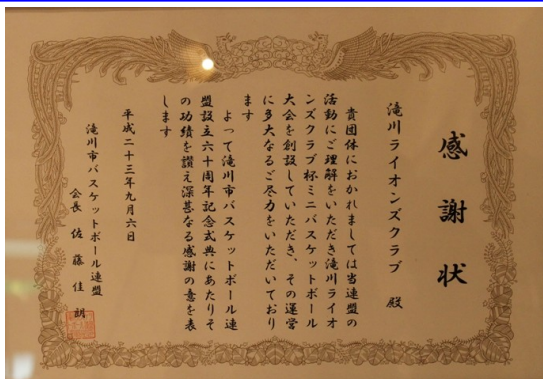 感謝状
滝川ライオンズクラブ 殿
貴団体におかれましては当連盟の
活動にご理解をいただき滝川ライオ
ンズクラブ杯ミニバスケットボール
大会を創設していただき、その運営
に多大なるご尽力をいただいており
ます
よって滝川市バスケットボール連
盟設立六十周年記念式典にあたりそ
の功績を讃え深甚なる感謝の意を表
します
平成二十三年九月六日
滝川市バスケットボール連盟
会長 佐藤佳朗